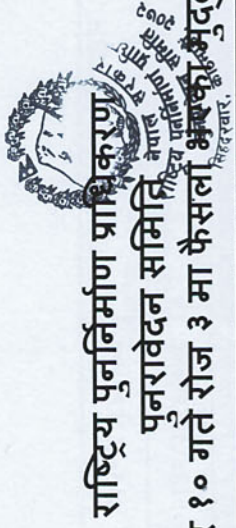 राष्ट्रिय पुनर्निर्माण प्राधिकरण
पुनरावेदन समिति
१० गते रोज ३ मा फैसला भएका
नेपाल सरकार
२०७२
सिंहदरवार,